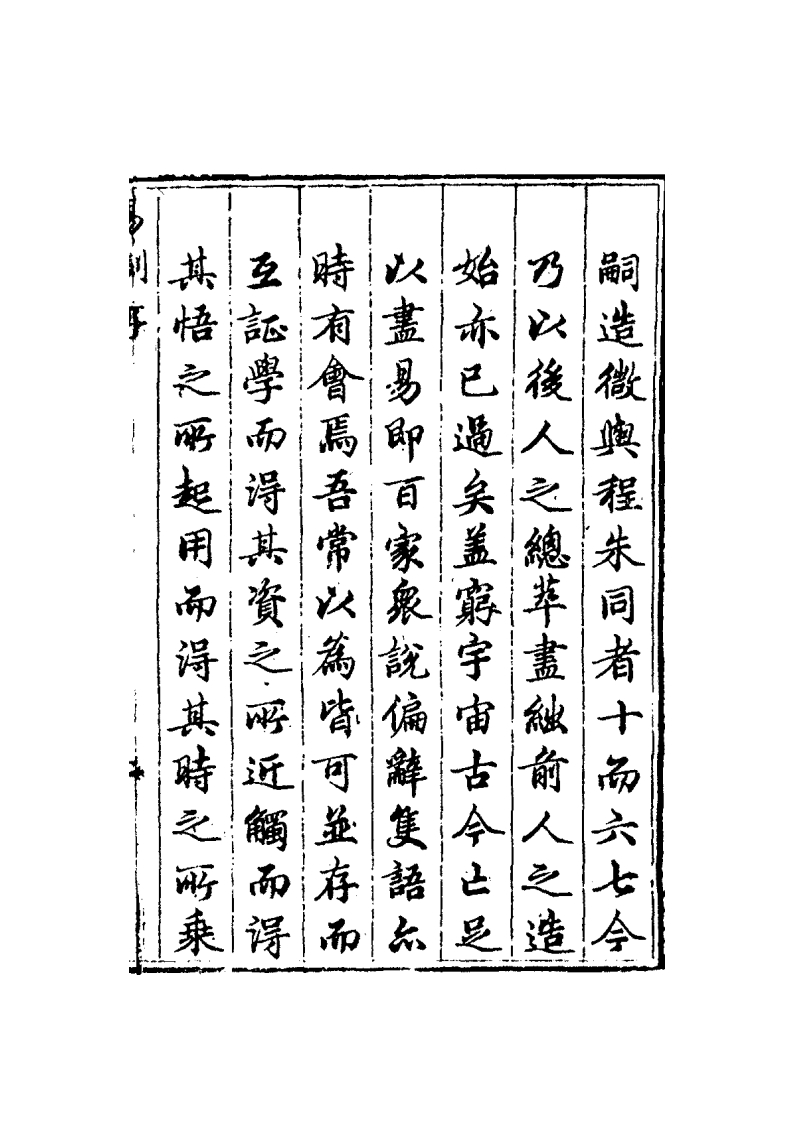 嗣造微與程朱同者十而六七今
乃以後人之總萃盡絀前人之造
始亦已過矣盖窮宇宙古今亡足
以盡易即百家眾說偏辭隻語亦
時有會焉吾常以為皆可並存而
互証學而得其資之所近觸而得
其悟之所起用而得其時之所乘